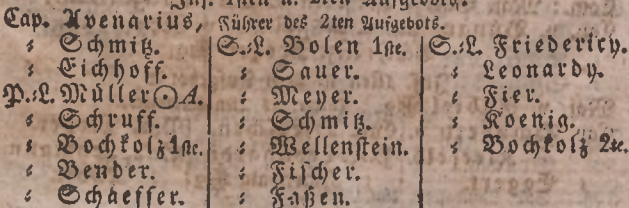 Cap. Avenarius, Führer des 2ten Aufgebots.
⸗ Schmitz.
⸗ Eichhoff.
P.⸗L. Müller☉A.
⸗ Schruff.
⸗ Bochkolz 1ste.
⸗ Bender.
⸗ Schaeffer.
S.⸗L. Bolen 1ste.
⸗ Sauer.
⸗ Meyer.
⸗ Schmitz.
⸗ Wellenstein.
⸗ Fischer.
⸗ Faßen.
S.⸗L. Friederich.
⸗ Leonardy.
⸗ Fier.
⸗ Koenig.
⸗ Bochkolz 2te.